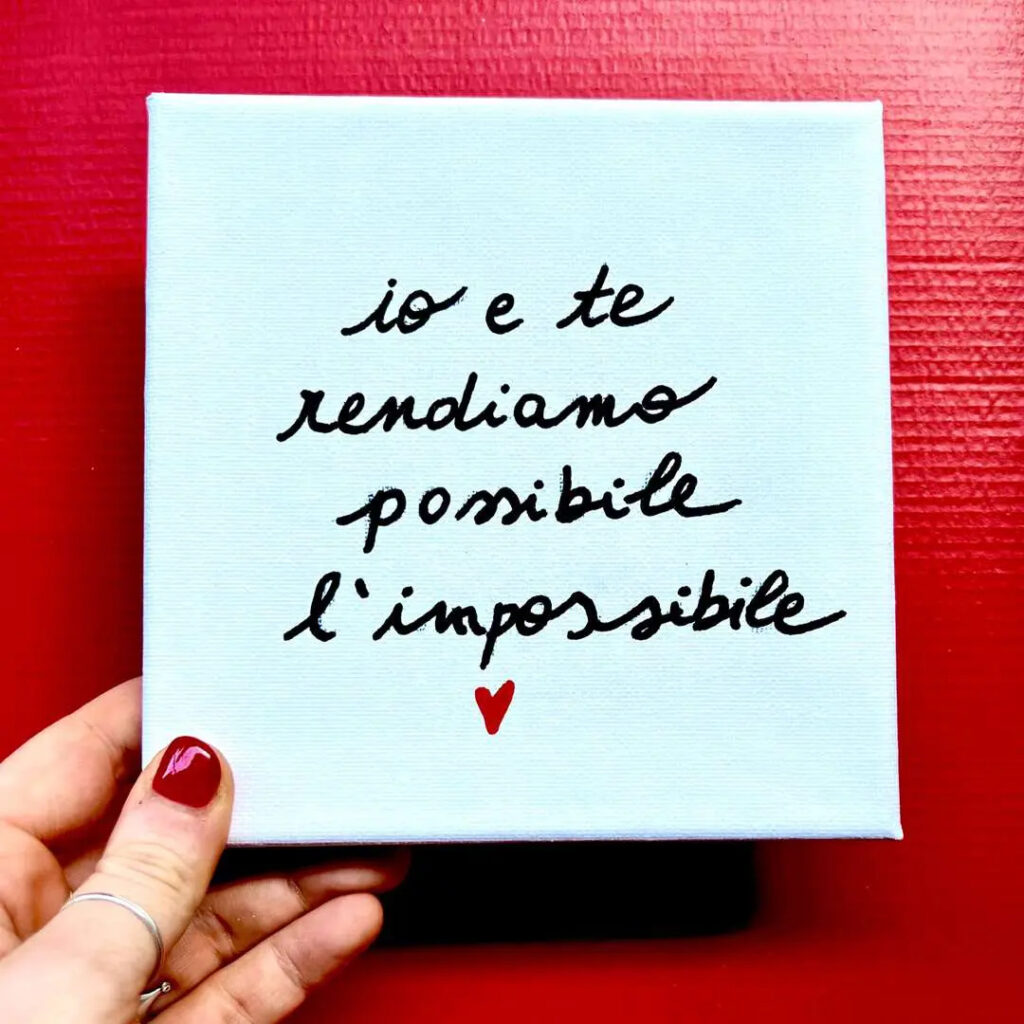 io e te
rendiamo
possibile
l'impossibile